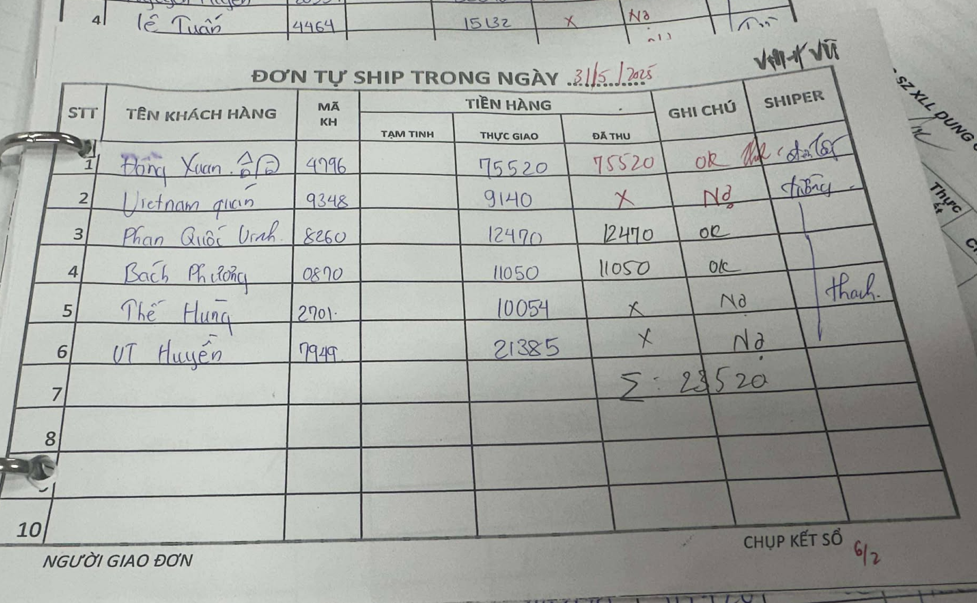 4 Lê Tuấn 4464 15132 X Nợ
ĐƠN TỰ SHIP TRONG NGÀY 31/5/2025
STT TÊN KHÁCH HÀNG MÃ KH TIỀN HÀNG GHI CHÚ SHIPER
TẠM TINH THỰC GIAO ĐÃ THU
1 Đồng Xuân 4796 75520 75520 OK
2 Vietnam quán 9348 9140 X Nợ
3 Phan Quốc Vinh 8260 12470 12470 OK
4 Bách Phương 0870 11050 11050 OK
5 Thế Hùng 2701 10054 X Nợ thach.
6 UT Huyền 7949 21385 X Nợ
7 Σ: 23520
8
10
NGƯỜI GIAO ĐƠN
CHỤP KẾT SỔ 6/2
SZ XLL DUNG
Thực